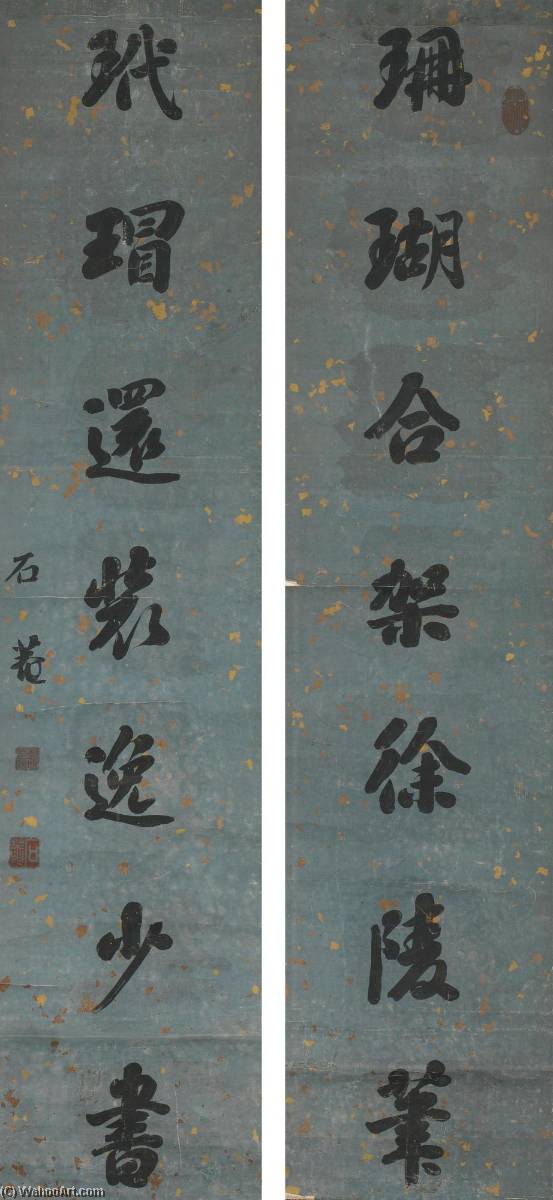 珊瑚合架徐陵筆
玳瑁還裝逸少書
石菴
(C) WahooArt.com